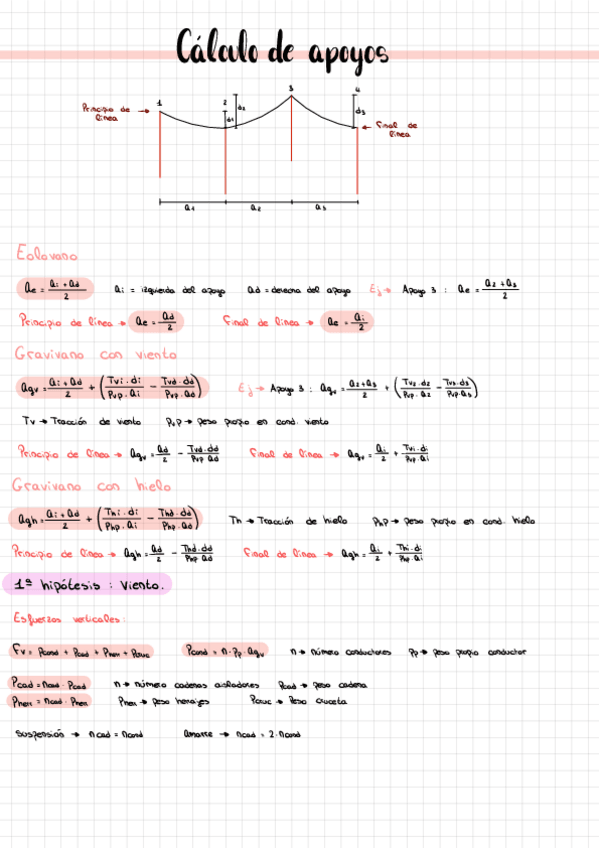 Cálculo de apoyos
Principio de línea → 1 2 3 4
d1 d2 d3
← Final de línea
a1 a2 a3
Eolovano
ae = (ai + ad)/2 ai = izquierda del apoyo ad = derecha del apoyo Ej → Apoyo 3 : ae = (a2 + a3)/2
Principio de línea → ae = ad/2 Final de línea → ae = ai/2
Gravivano con viento
agv = (ai + ad)/2 + (Tvi · di/Pvp · ai − Tvd · dd/Pvp · ad) Ej → Apoyo 3 : agv = (a2 + a3)/2 + (Tv2 · d2/Pvp · a2 − Tv3 · d3/Pvp · a3)
Tv → Tracción de viento Pvp → peso propio en cond. viento
Principio de línea → agv = ad/2 − Tvd · dd/Pvp · ad Final de línea → agv = ai/2 + Tvi · di/Pvp · ai
Gravivano con hielo
agh = (ai + ad)/2 + (Thi · di/Php · ai − Thd · dd/Php · ad) Th → Tracción de hielo Php → peso propio en cond. hielo
Principio de línea → agh = ad/2 − Thd · dd/Php · ad Final de línea → agh = ai/2 + Thi · di/Php · ai
1ª hipótesis : Viento.
Esfuerzos verticales:
Fv = Pcond + Pcad + Pherr + Pcruc Pcond = n · Pp · agv n → número conductores Pp → peso propio conductor
Pcad = ncad · Pcad n → número cadenas aisladores Pcad → peso cadena
Pherr = ncad · Pherr Pherr → peso herrajes Pcruc → Peso cruceta
Suspensión → ncad = ncond amarre → ncad = 2 · ncond